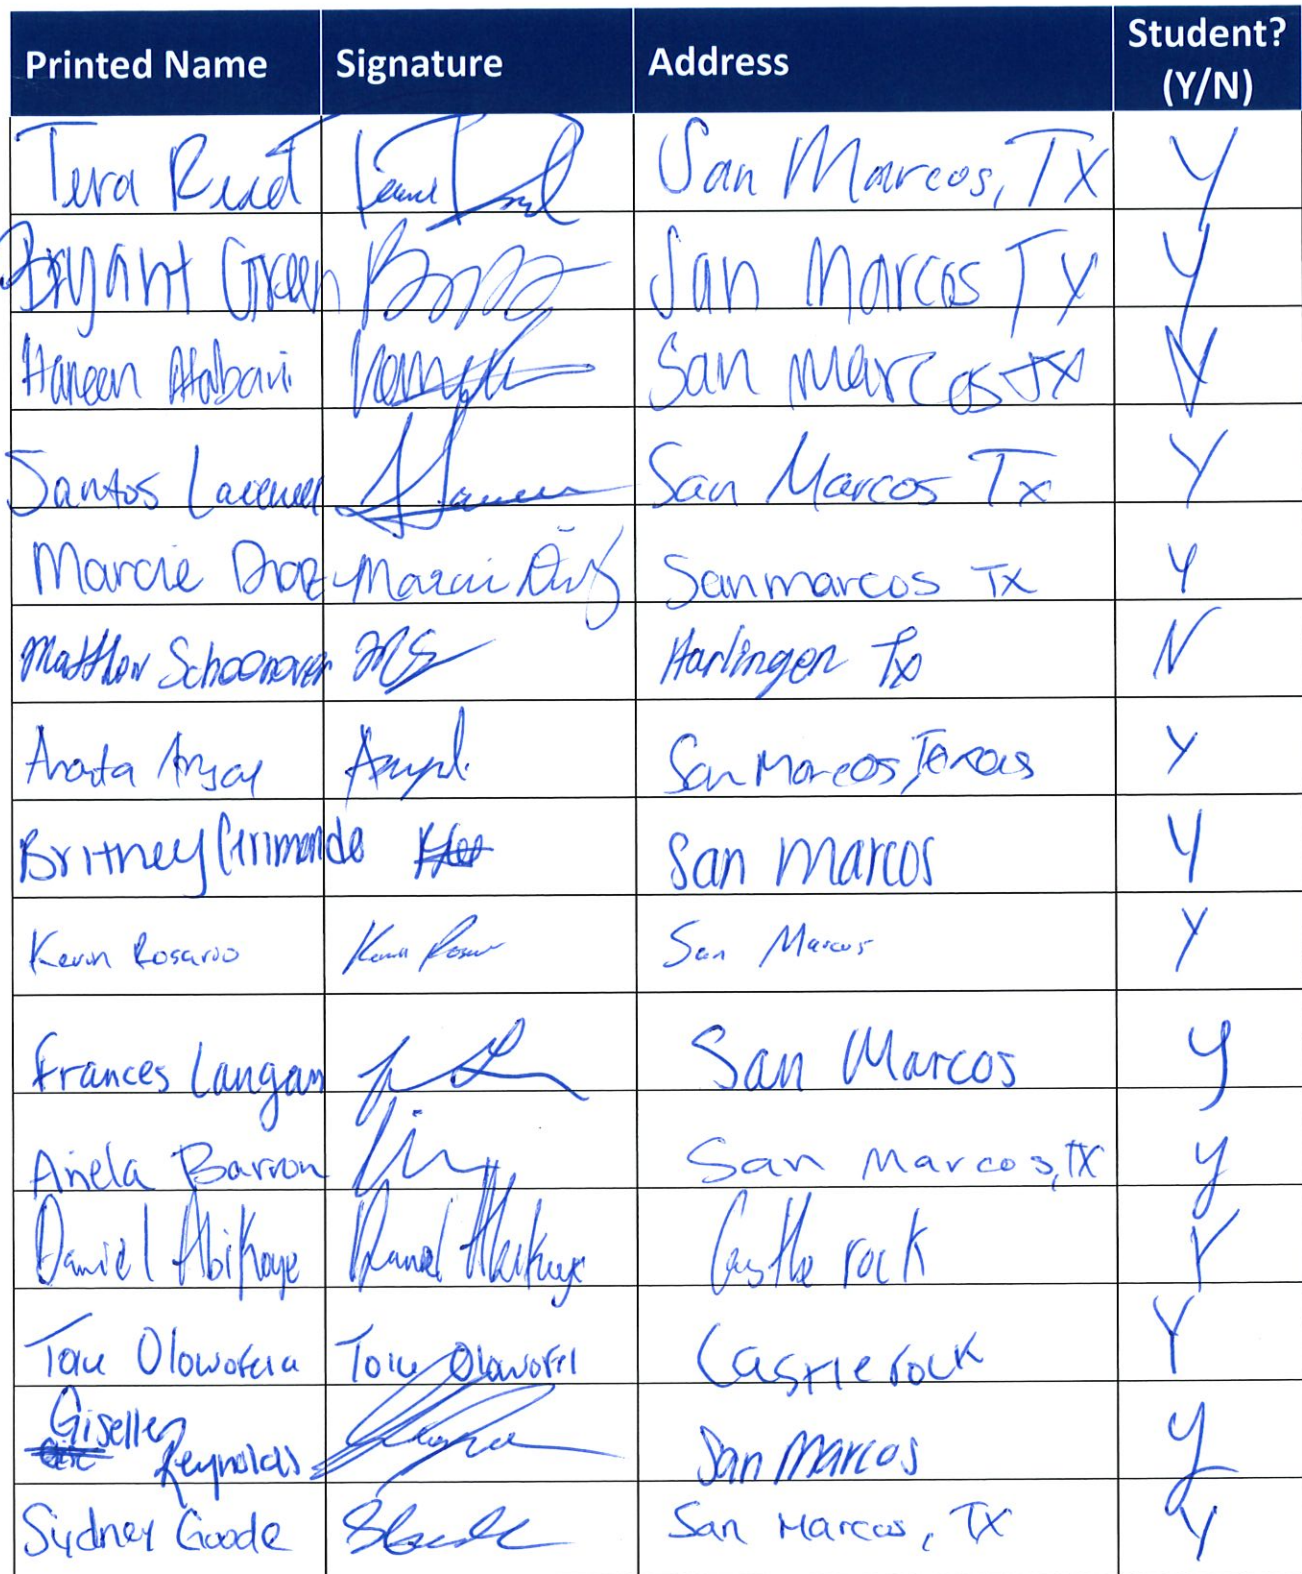 Printed Name Signature Address Student? (Y/N)
Tera Reed San Marcos, TX Y
Bryant Green San Marcos TX Y
Haneen San Marcos TX Y
Santos San Marcos Tx Y
Marcie Diaz Marcie Diaz San marcos TX Y
Matthew Schoonover MS Harlingen Tx N
San Marcos, Texas Y
Britney Grimando San Marcos Y
Kevin Rosario San Marcos Y
Frances Langan San Marcos Y
Ariela Barron San Marcos, TX Y
Daniel Abikoye Daniel Abikoye Castle rock Y
Castle rock Y
Giselle Reynolds San Marcos Y
Sydney Goode San Marcos, TX Y